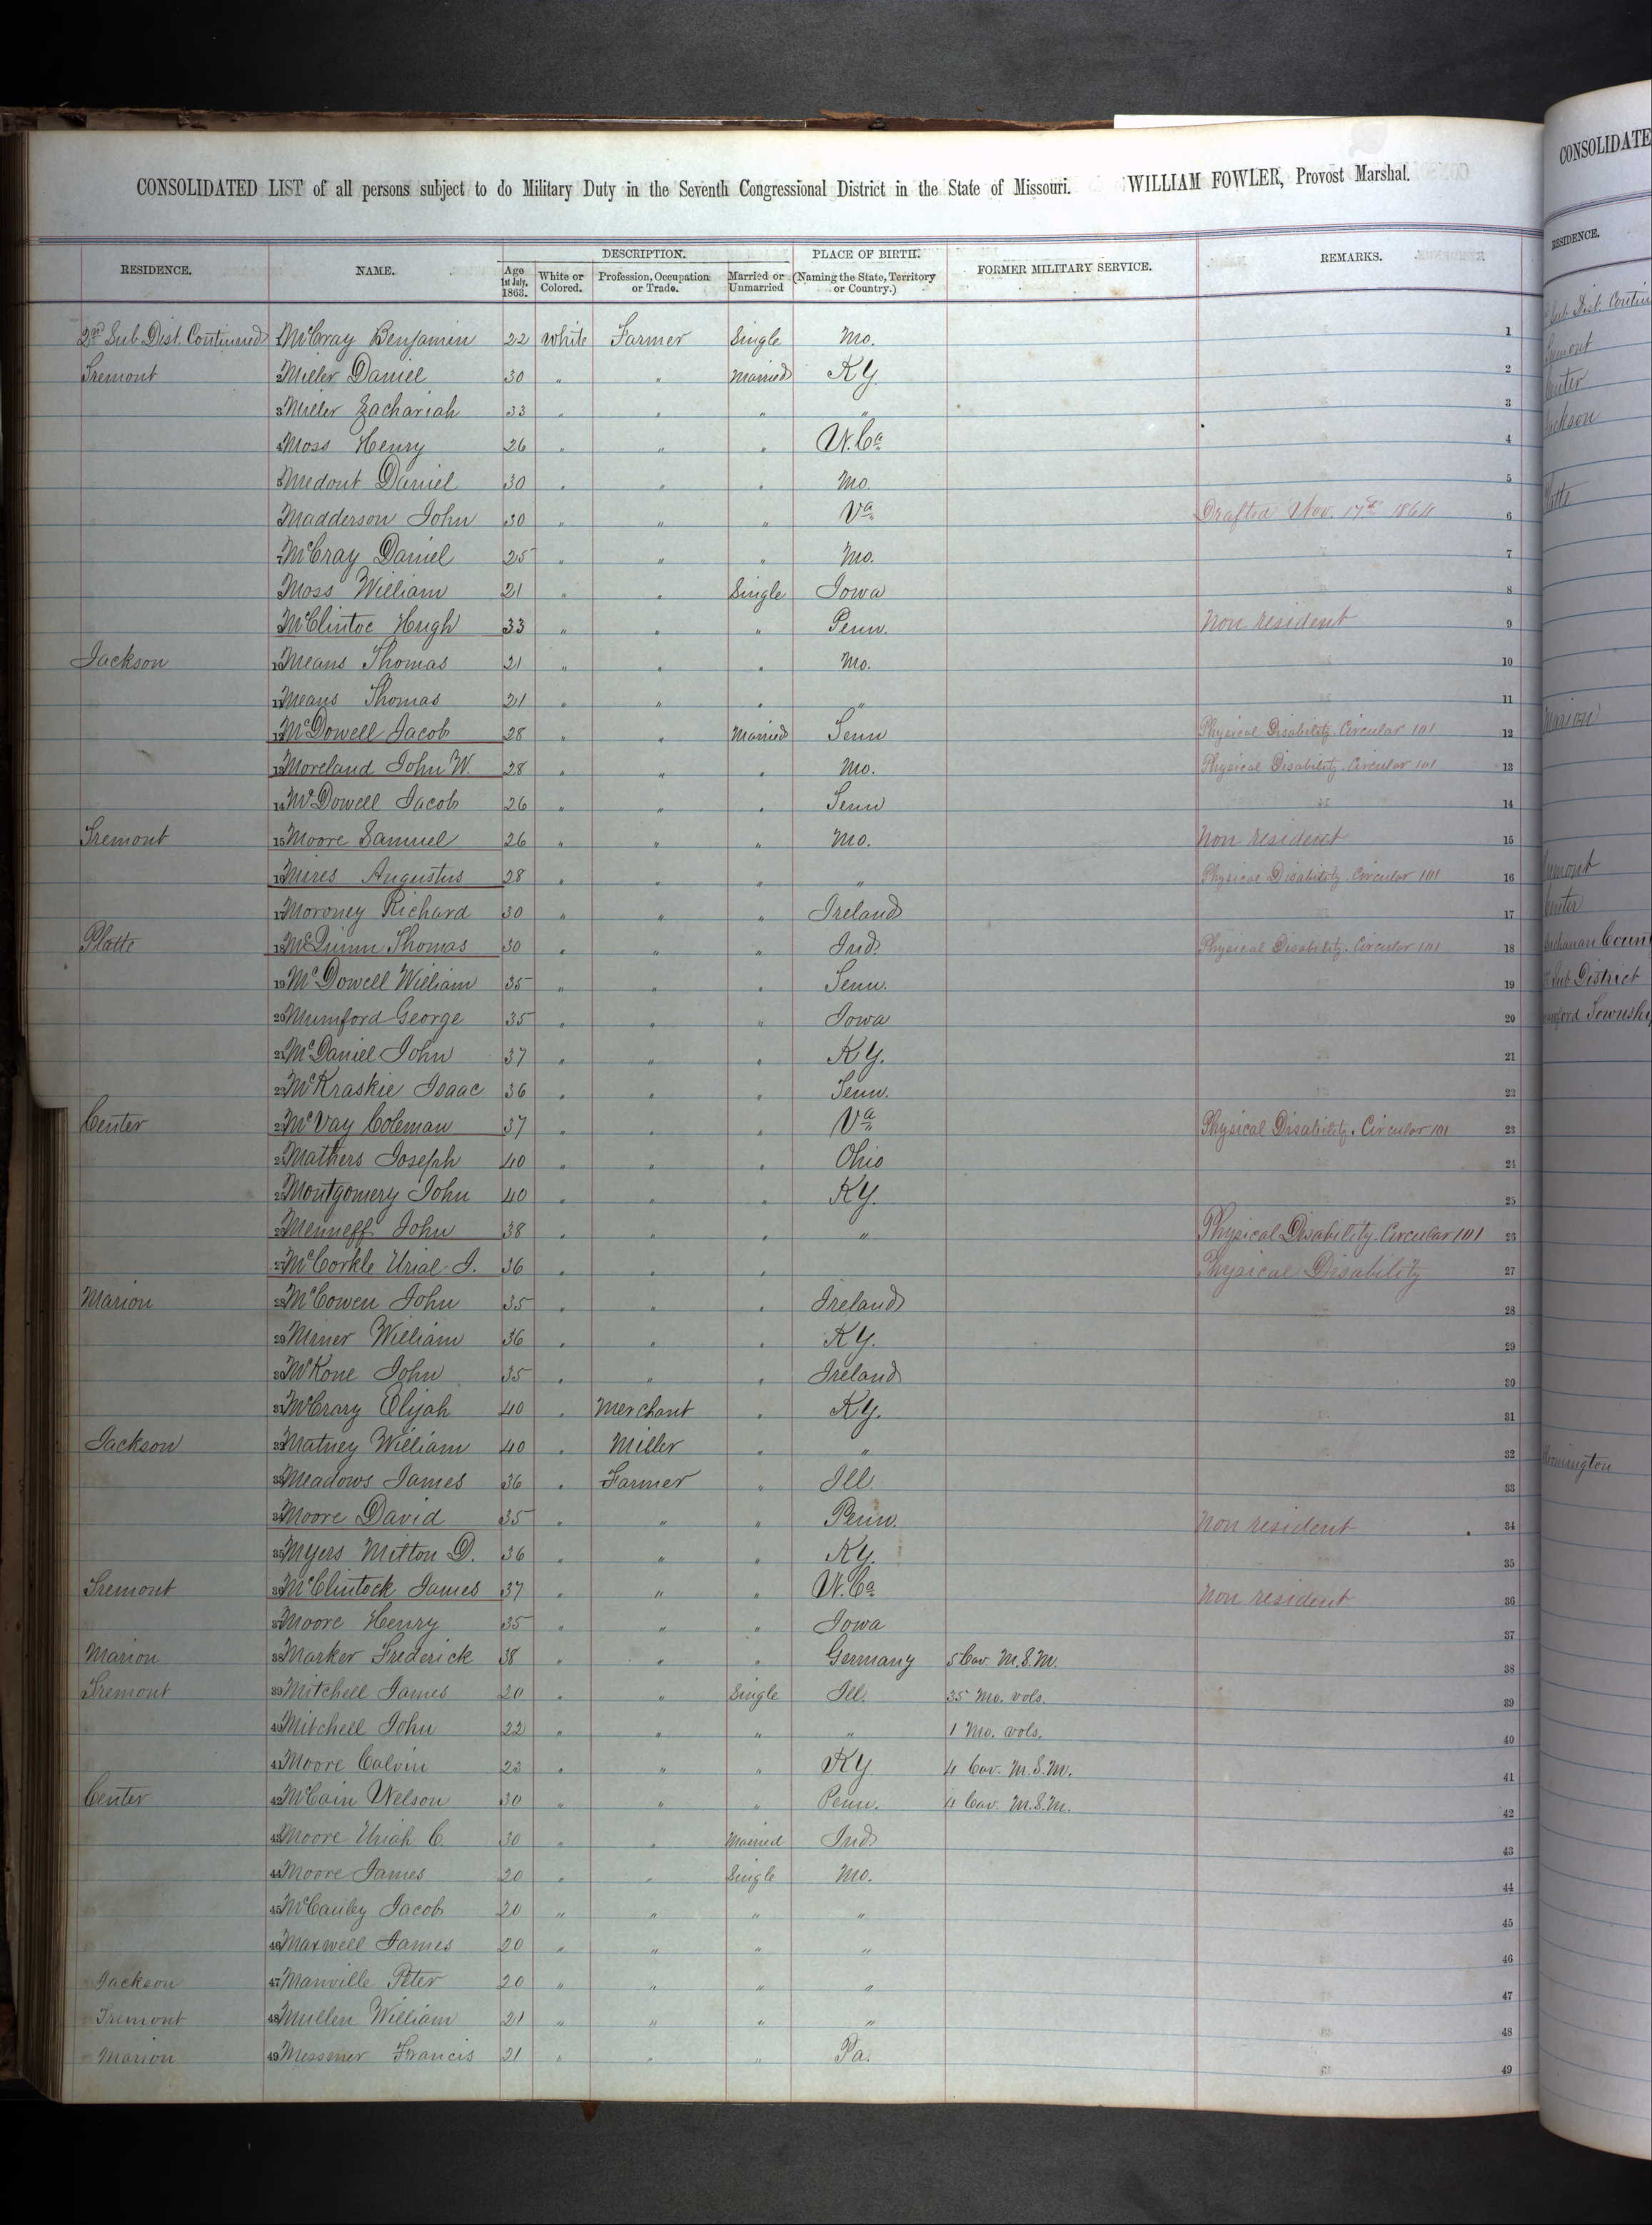 CONSOLIDATED LIST of all persons subject to do Military Duty in the Seventh Congressional District in the State of Missouri. WILLIAM FOWLER, Provost Marshal.
RESIDENCE. NAME. DESCRIPTION. PLACE OF BIRTH. FORMER MILITARY SERVICE. REMARKS.
Age 1st July, 1863. White or Colored. Profession, Occupation or Trade. Married or Unmarried (Naming the State, Territory or Country.)
2nd Sub Dist. Continued 1 McCray Benjamin 22 White Farmer Single Mo. 1
Tremont 2 Miller Daniel 30 " " Married Ky. 2
3 Miller Zachariah 33 " " " " 3
4 Moss Henry 26 " " " N. Ca 4
5 Medout Daniel 30 " " " Mo. 5
Madderson John 30 " " " Va Drafted Nov. 17th 1864 6
7 McCray Daniel 25 " " " Mo. 7
Moss William 21 " " Single Iowa 8
McClintoc Hugh 33 " " " Penn. Non resident 9
Jackson 10 Means Thomas 21 " " " Mo. 10
11 Means Thomas 21 " " " " 11
12 McDowell Jacob 28 " " Married Tenn Physical Disability. Circular 101 12
13 Moreland John W. 28 " " " Mo. Physical Disability. Circular 101 13
14 McDowell Jacob 26 " " " Tenn 14
Tremont 15 Moore Samuel 26 " " " Mo. Non resident 15
16 Mires Augustus 28 " " " " Physical Disability. Circular 101 16
17 Moroney Richard 30 " " " Ireland 17
Platte 18 McQuinn Thomas 30 " " " Ind. Physical Disability. Circular 101 18
19 McDowell William 35 " " " Tenn. 19
20 Mumford George 35 " " " Iowa 20
21 McDaniel John 37 " " " Ky. 21
22 McKraskie Isaac 36 " " " Tenn. 22
Center 23 McVay Coleman 37 " " " Va Physical Disability. Circular 101 23
24 Mathers Joseph 40 " " " Ohio 24
25 Montgomery John 40 " " " Ky. 25
26 Menneff John 38 " " " " Physical Disability. Circular 101 26
27 McCorkle Urial J. 36 " " " Physical Disability 27
Marion 28 McCowen John 35 " " " Ireland 28
29 Miner William 36 " " " Ky. 29
30 McKone John 35 " " " Ireland 30
31 McCrary Elijah 40 " Merchant " Ky. 31
Jackson 32 Matney William 40 " Miller " " 32
33 Meadows James 36 " Farmer " Ill. 33
34 Moore David 35 " " " Penn. Non resident 34
35 Myers Milton D. 36 " " " Ky. 35
Tremont 36 McClintock James 37 " " " N. Ca Non resident 36
37 Moore Henry 35 " " " Iowa 37
Marion 38 Marker Frederick 38 " " " Germany 5 Cav. M.S.M. 38
Tremont 39 Mitchell James 20 " " Single Ill. 35 Mo. vols. 39
40 Mitchell John 22 " " " " 1 Mo. vols. 40
41 Moore Calvin 23 " " " Ky. 4 Cav. M.S.M. 41
Center 42 McCain Nelson 30 " " " Penn. 4 Cav. M.S.M. 42
43 Moore Uriah C. 30 " " Married Ind. 43
44 Moore James 20 " " Single Mo. 44
45 McCauley Jacob 20 " " " " 45
46 Maxwell James 20 " " " " 46
Jackson 47 Manville Peter 20 " " " " 47
Tremont 48 Mullen William 21 " " " " 48
Marion 49 Messmer Francis 21 " " " Pa. 49
CONSOLIDATE
RESIDENCE.
Sub Dist. Contin
Tremont
Center
Jackson
Platte
Marion
Tremont
Center
Buchanan Coun
Sub District
Township